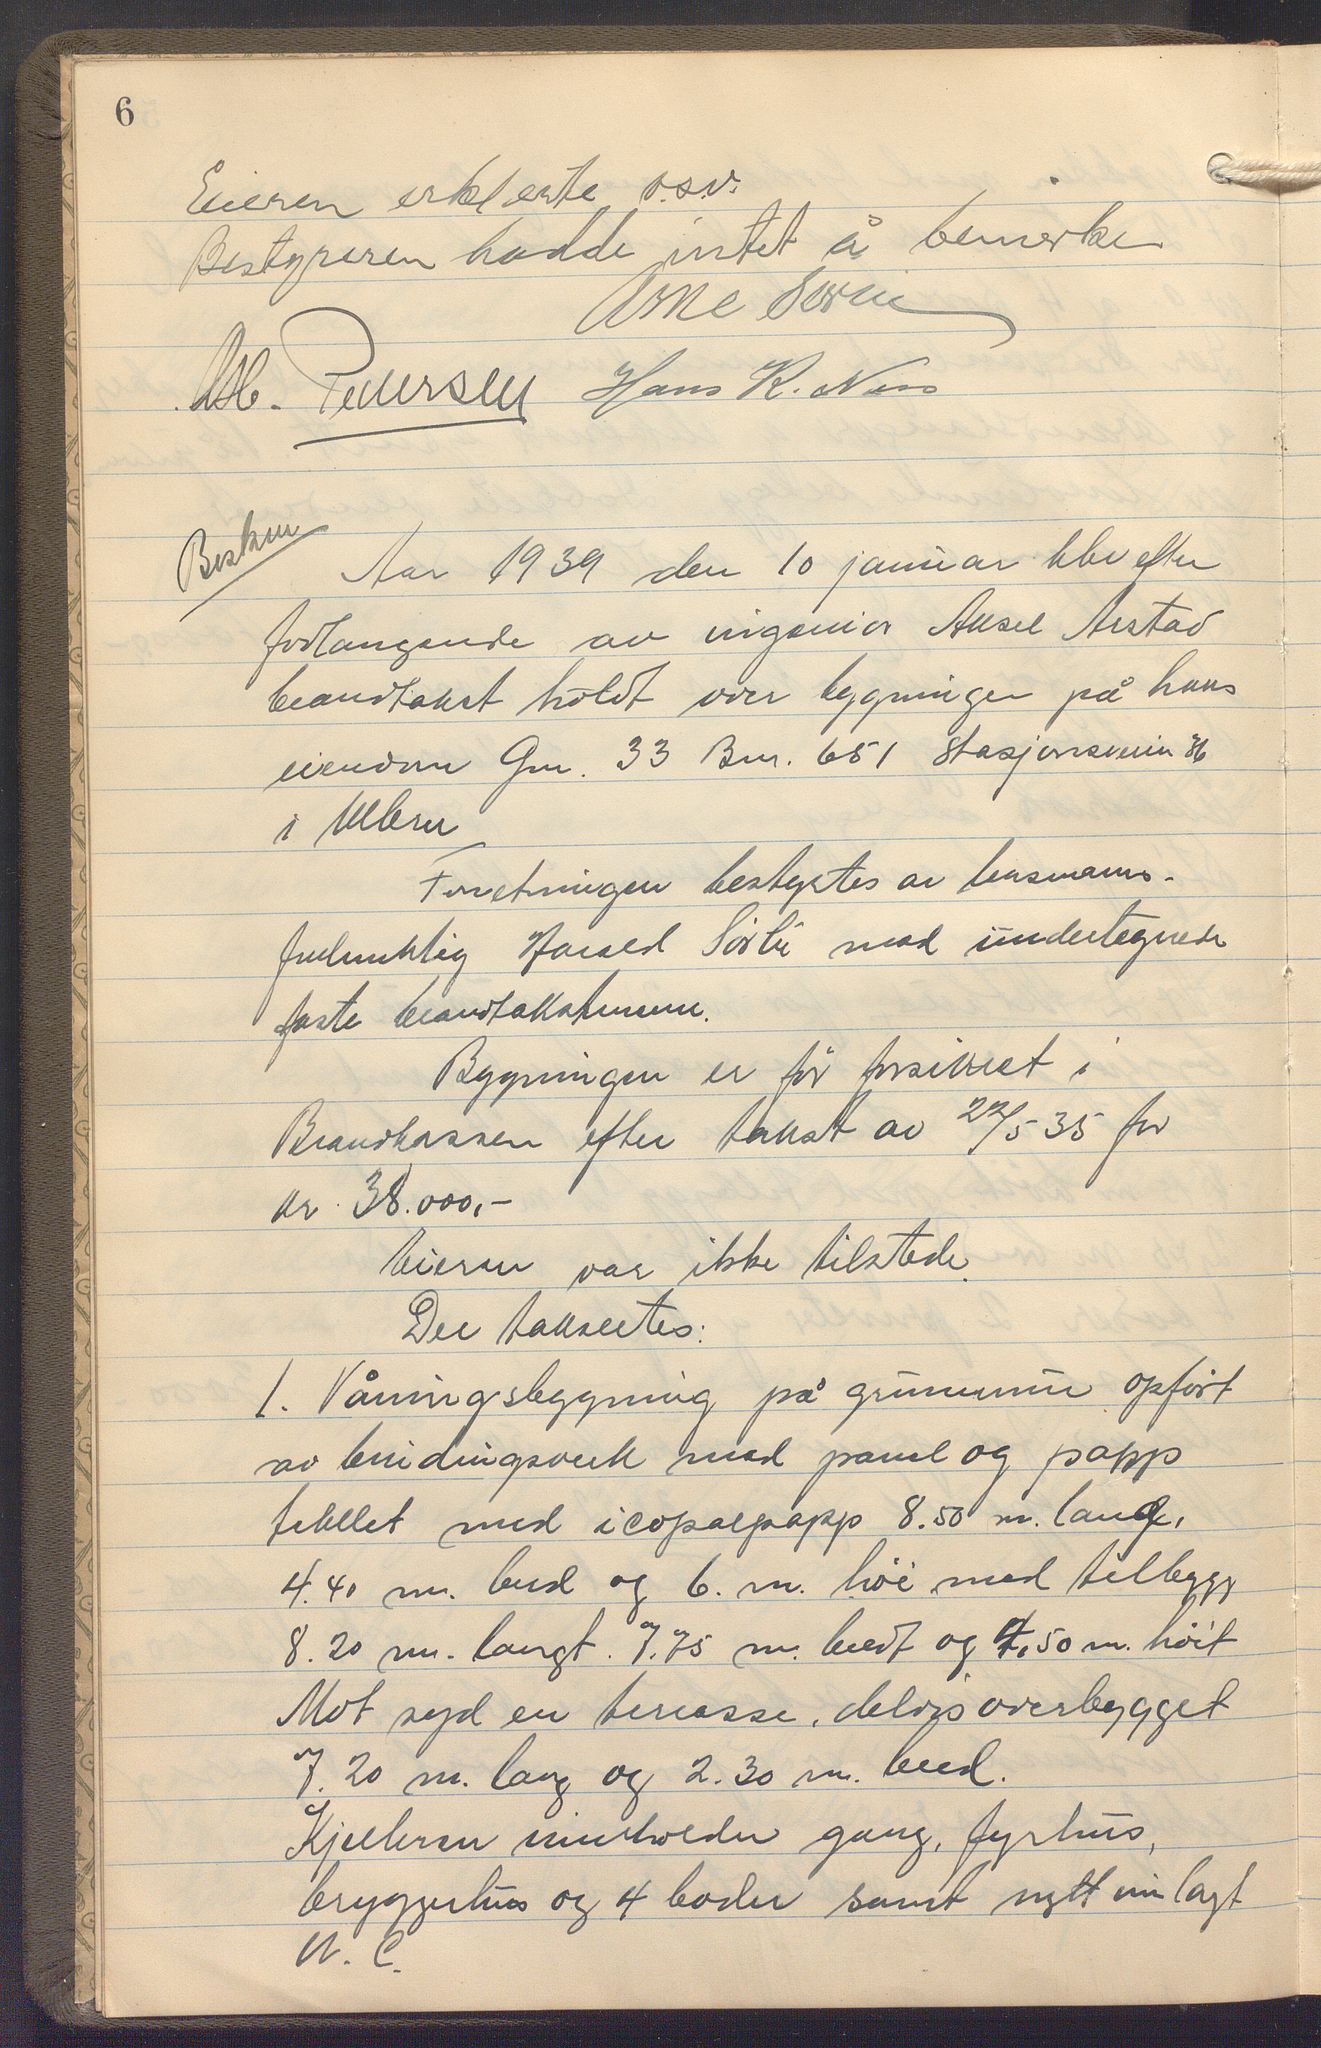 6
Eieren erklerte o.s.v.
Bestyreren hadde intet å bemerke
Arne
Pedersen Hans K. Næss
Beskrev
Aar 1939 den 10 januar blev efter
forlangende av ingeniør Aksel Arstad
brandtakst holdt over bygningen på hans
eiendom Gnr. 33 Bnr. 651 Stasjonsveien 36
i Ullern
Forretningen bestyrtes av lensmanns-
fuldmektig Harald Sørlie med undertegnede
faste brandtakstmenn.
Bygningen er før forsikret i
Brandkassen efter takst av 22/5-35 for
kr. 38.000,-
Eieren var ikke tilstede.
Der takseertes:
1. Våningsbygning på grunnmur opført
av bindingsverk med panel og papp
tekket med icopalpapp 8.50 m. lang,
4.40 m. bred og 6. m. høi med tilbygg
8.20 m. langt. 7.75 m. bredt og 7.50 m. høit
Mot syd en terrasse, delvis overbygget
7.20 m. lang og 2.30 m. bred.
Kjelleren inneholder gang, fyrhus,
bryggerhus og 4 boder samt nytt innlagt
W. C.